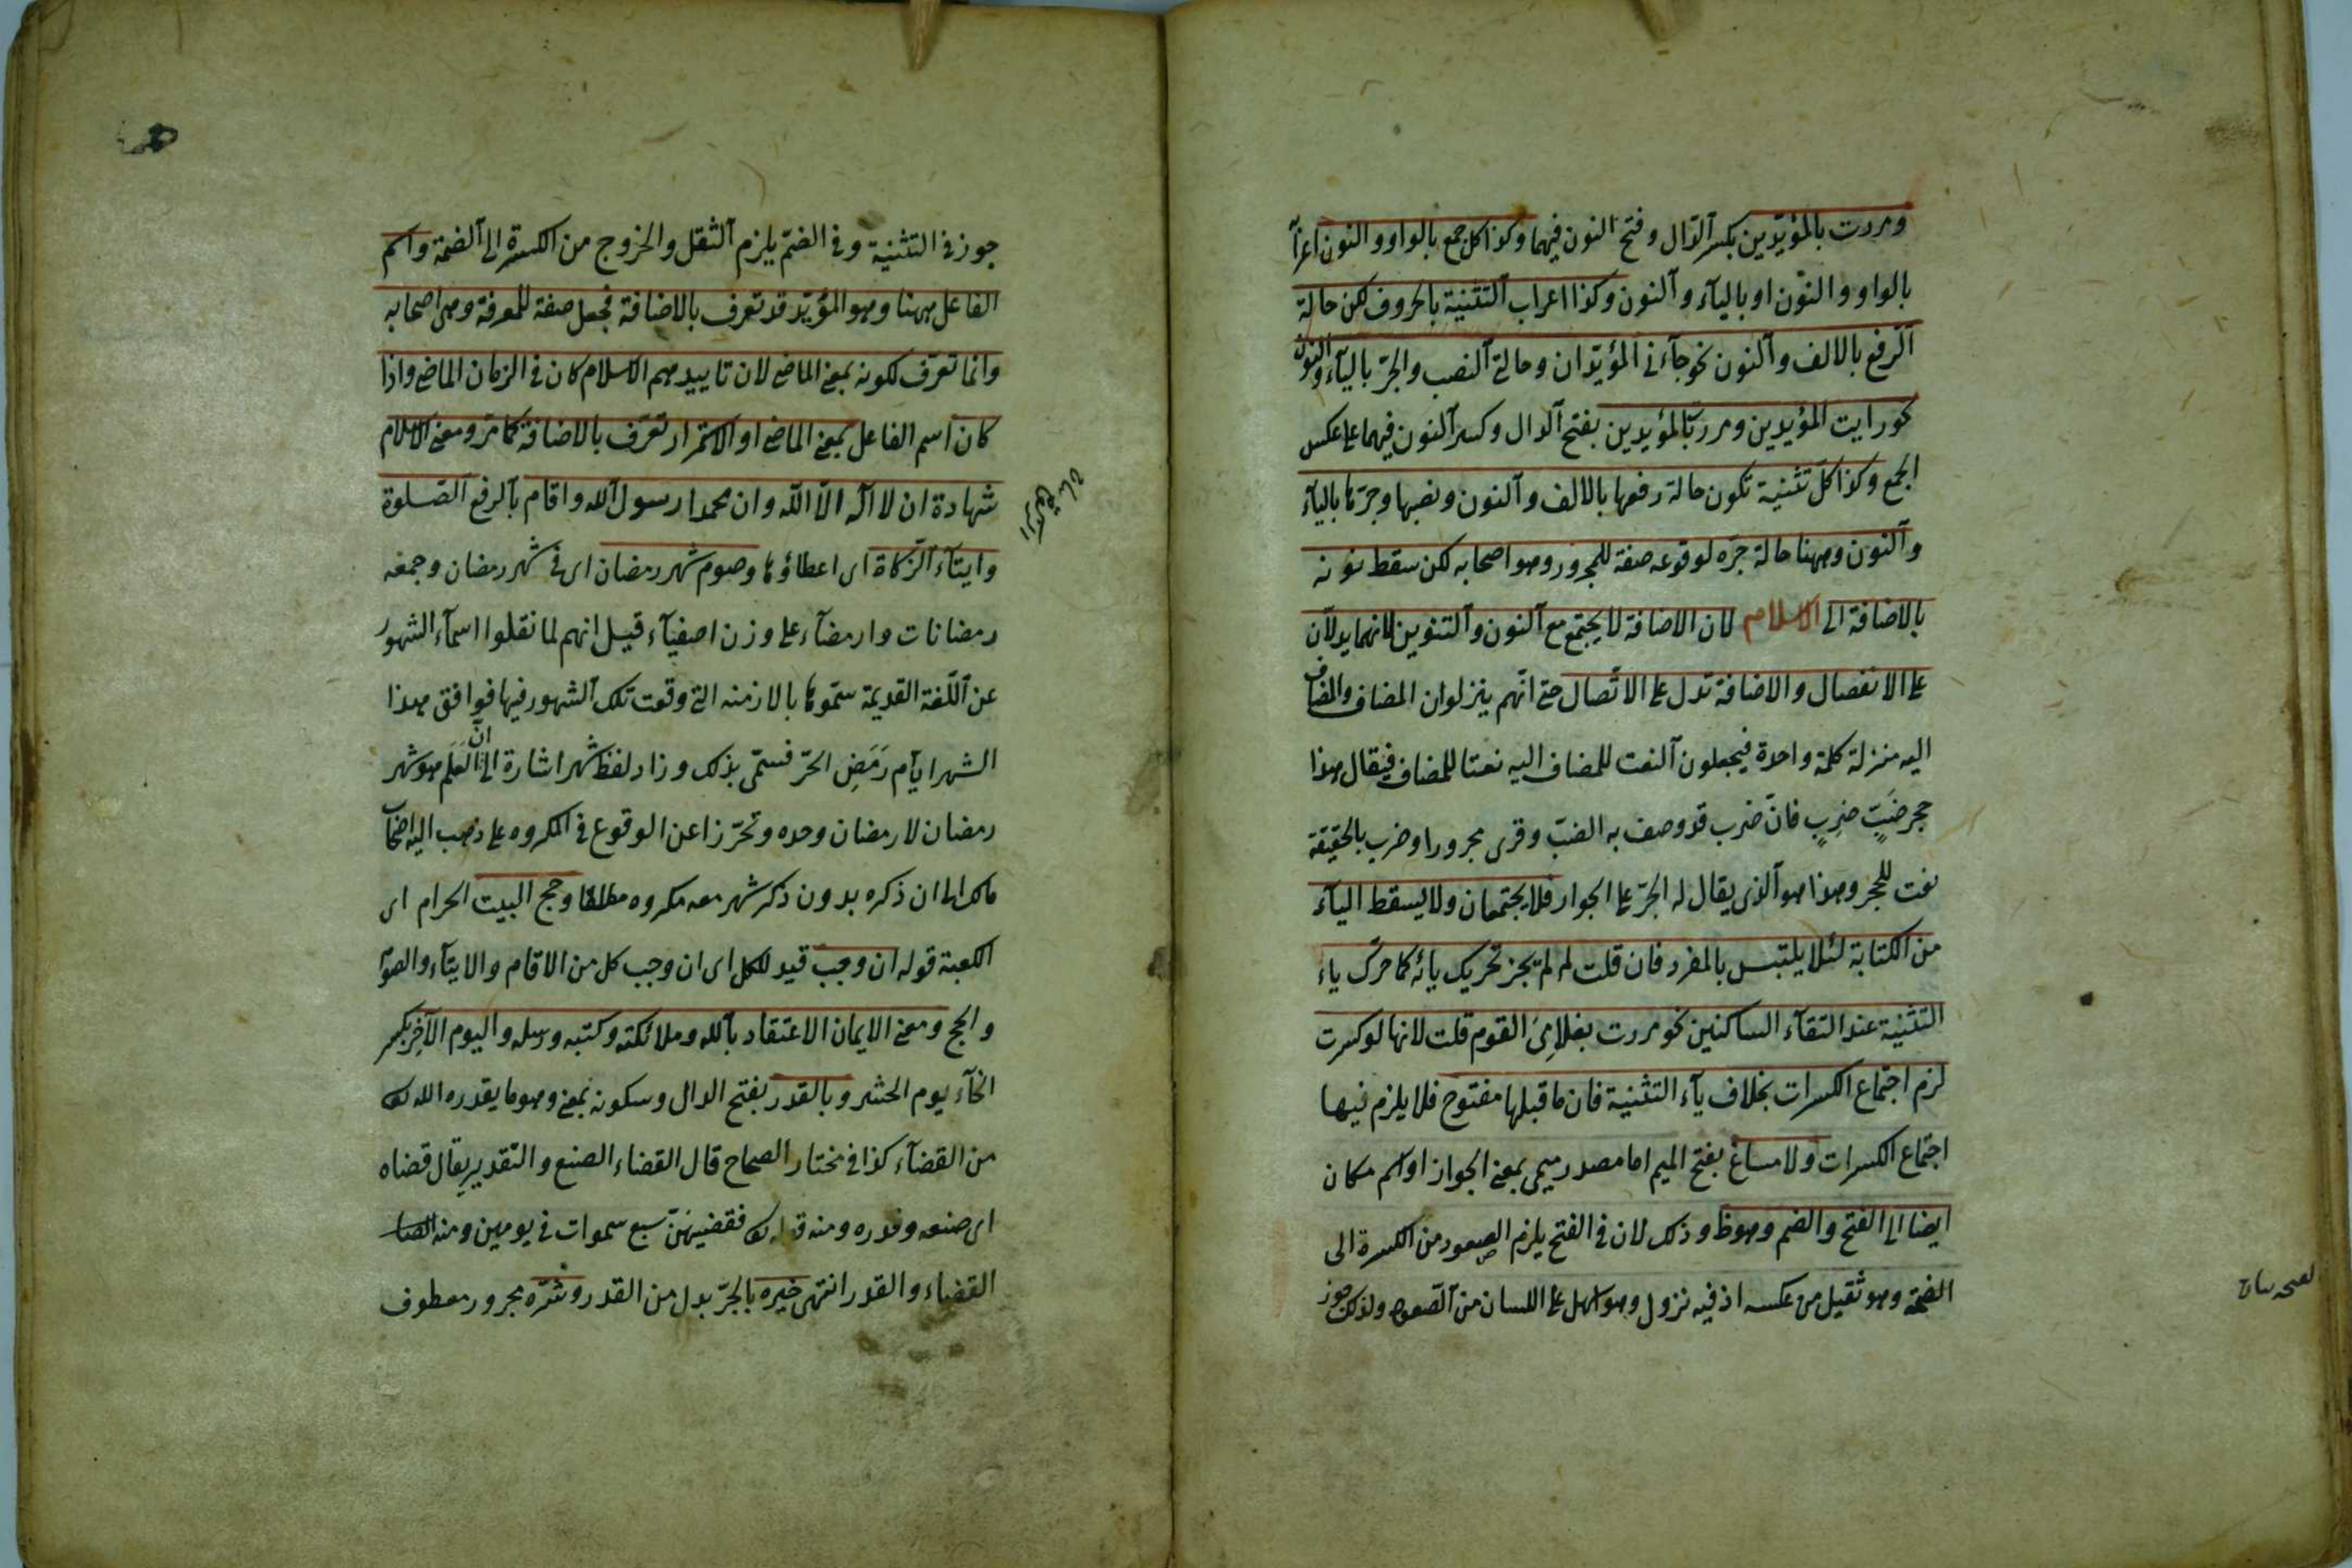 ومررت بالمؤيّدين بكسر الدّال وفتح النون فيهما وكذا كل جمع بالواو والنون اعرابا
بالواو والنّون او بالياء والنون وكذا اعراب التثنية بالحروف لكن حالة
الرّفع بالالف والنون نحو جاءنى المؤيّدان وحالتى النصب والجرّ بالياء والنون
نحو رايت المؤيدين ومررت بالمؤيدين بفتح الدال وكسر النون فيهما على عكس
الجمع وكذا كلّ تثنية تكون حالة رفعها بالالف والنون ونصبها وجرّها بالياء
والنون وههنا حالة جرّه لوقوعه صفة للمجرور وهو اصحابه لكن سقط نونه
بالاضافة الى الاسلام لان الاضافة لا يجتمع مع النون والتنوين لانهما يدلان
على الانفصال والاضافة تدل على الاتّصال حتى انّهم ينزلون المضاف والمضاف
اليه منزلة كلمة واحدة فيجعلون النعت للمضاف اليه نعتا للمضاف فيقال هذا
حجر ضبٍّ خربٍ فانّ خرب قد وصف به الضبّ وقرى مجرورا وخرب بالحقيقة
نعت للحجر وهذا هو الذى يقال له الجرّ على الجوار فلا يجتمعان ولا يسقط الياء
من الكتابة لئلا يلتبس بالمفرد فان قلت لم لم يجز تحريك يائه كما حرّك ياء
التثنية عند التقاء الساكنين نحو مررت بغلامى القوم قلت لانها لو كسرت
لزم اجتماع الكسرات بخلاف ياء التثنية فان ما قبلها مفتوح فلا يلزم فيها
اجتماع الكسرات ولا مساغ بفتح الميم اما مصدر ميمى بمعنى الجواز او اسم مكان
ايضا الى الفتح والضم وهو ظ وذلك لان فى الفتح يلزم الصعود من الكسرة الى
الفتحة وهو ثقيل من عكسه اذ فيه نزول وهو اسهل على اللسان من الصّعود ولذلك جوز
جوز فى التثنية وفى الضمّ يلزم الثقل والخروج من الكسرة الى الضمة واسم
الفاعل ههنا وهو المؤيّد قد تعرف بالاضافة فجعل صفة للمعرفة وهى اصحابه
وانما تعرّف لكونه بمعنى الماضى لان تاييدهم الاسلام كان فى الزمان الماضى واذا
كان اسم الفاعل بمعنى الماضى او الاستمرار تعرّف بالاضافة كما مرّ ومعنى الاسلام
شهادة ان لا اله الّا اللّه وان محمدا رسول الله واقام بالرفع الصّلوة
وايتاء الزّكاة اى اعطاؤها وصوم شهر رمضان اى فى شهر رمضان وجمعه
رمضانات وارمضاء على وزن اصفياء قيل انهم لما نقلوا اسماء الشهور
عن اللّغة القديمة سمّوها بالازمنه التى وقعت تلك الشهور فيها فوافق هذا
الشهر ايّام رَمَضِ الحرّ فسمّى بذلك وزاد لفظ شهر اشارة الى انّ العَلَم هو شهر
رمضان لا رمضان وحده وتحرّزا عن الوقوع فى المكروه على ذهب اليه اصحاب
مالك الى ان ذكره بدون ذكر شهر معه مكروه مطلقا وحج البيت الحرام اى
الكعبة قوله ان وجب قيد للكل اى ان وجب كل من الاقام والايتاء والصوم
والحج ومعنى الايمان الاعتقاد بالله وملائكته وكتبه ورسله واليوم الآخِر بكسر
الخاء يوم الحشر وبالقدر بفتح الدال وسكونه بمعنى وهو ما يقدره الله تعالى
من القضاء كذا فى مختار الصحاح قال القضاء الصنع والتقدير يقال قضاه
اى صنعه وقدره ومنه قوله تعالى فقضيهنّ سبع سموات فى يومين ومنه
القضاء والقدر انتهى خيره بالجرّ بدل من القدر وشرّه مجرور معطوف